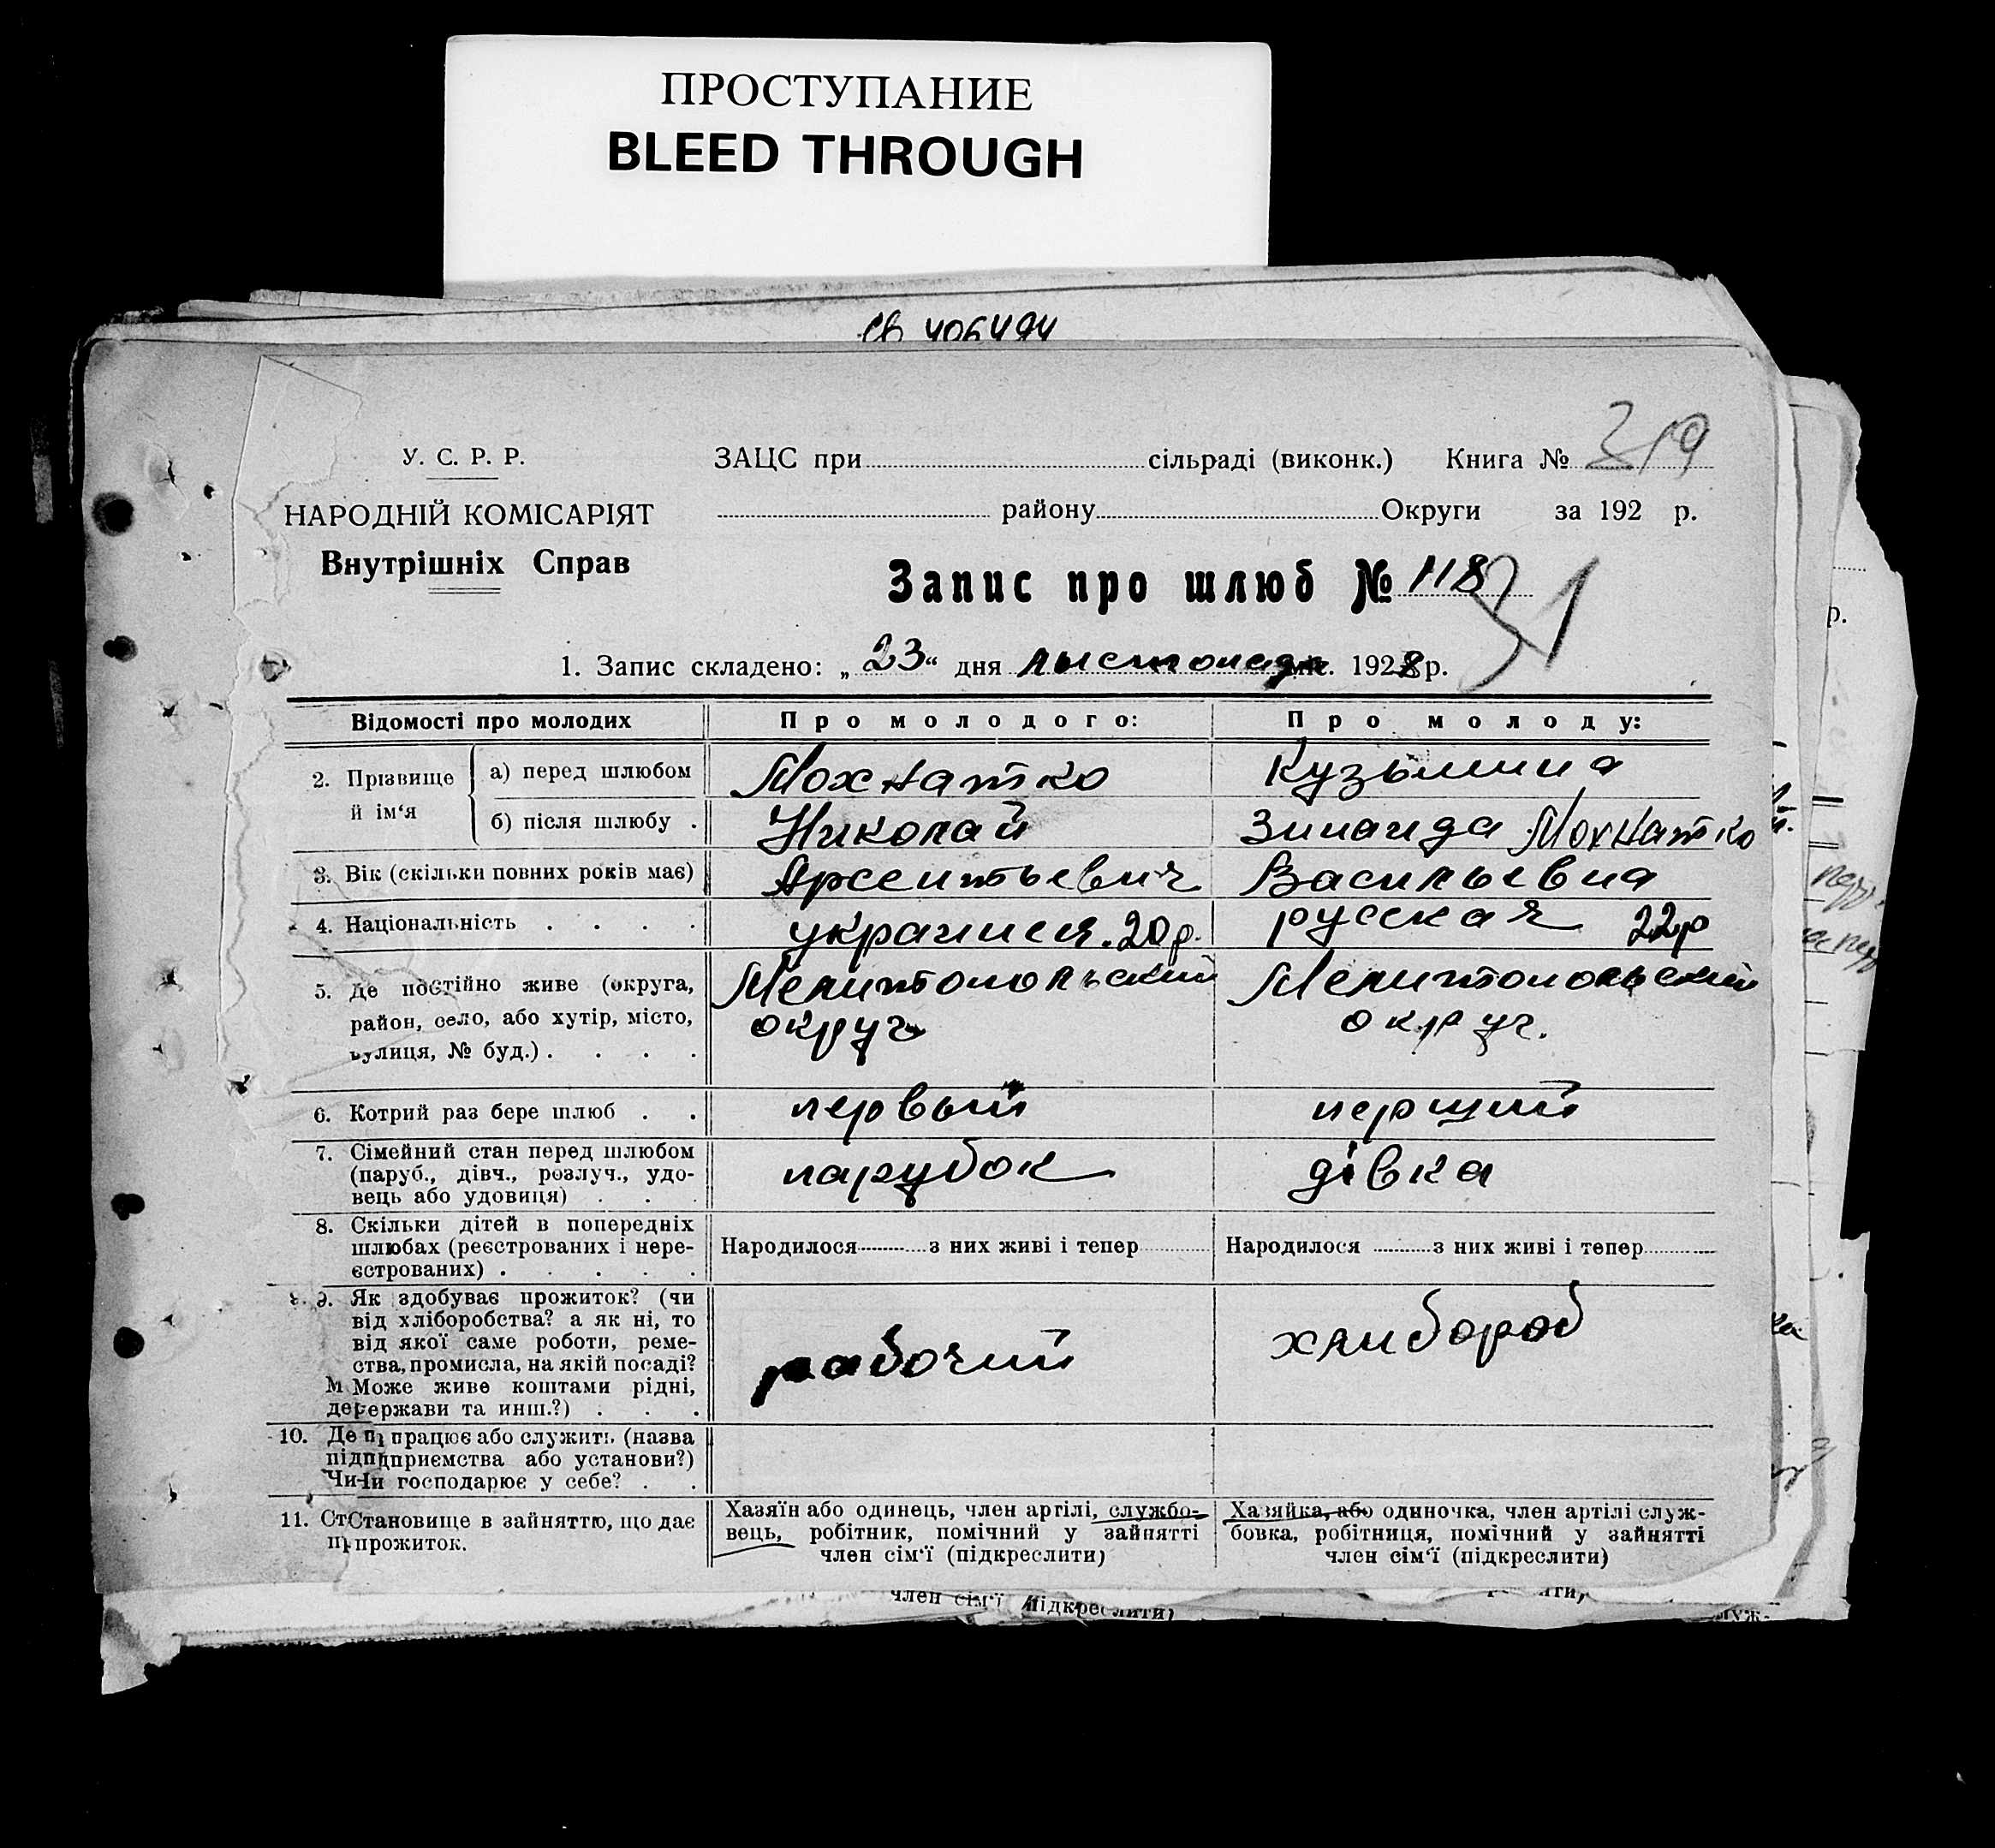 ПРОСТУПАНИЕ
BLEED THROUGH
У. С. Р. Р.
НАРОДНІЙ КОМІСАРІЯТ
Внутрішніх Справ
ЗАЦС при сільраді (виконк.) Книга № 319
району Округи за 192 р.
Запис про шлюб № 118
31
1. Запис складено: „23“ дня листопада міс. 1928 р.
Відомості про молодих
Про молодого:
Про молоду:
2. Прізвище й ім‘я
а) перед шлюбом
Мохнатко
Кузьмина
б) після шлюбу .
Николай
Зинаида Мохнатко
3. Вік (скільки повних років має)
Арсентьевич
Васильевна
4. Національність . . . .
украинея. 20 р.
русская 22 р
5. Де постійно живе (округа,
район, село, або хутір, місто,
вулиця, № буд.) . . . .
Мелитопольский
округ
Мелитопольский
округ.
6. Котрий раз бере шлюб . .
первый
перший
7. Сімейний стан перед шлюбом
(паруб., дівч., розлуч., удо-
вець або удовиця) . . .
парубок
дівка
8. Скільки дітей в попередніх
шлюбах (реєстрованих і нере-
єстрованих) . . . . .
Народилося з них живі і тепер
Народилося з них живі і тепер
9. Як здобуває прожиток? (чи
від хліборобства? а як ні, то
від якої саме роботи, реме-
ства, промисла, на якій посаді?
Може живе коштами рідні,
держави та инш.?) . . .
рабочий
хлибороб
10. Де працює або служить (назва
підприємства або установи?)
Чи господарює у себе? . .
11. Становище в зайняттю, що дає
прожиток.
Хазяїн або одинець, член артілі, службо-
вець, робітник, помічний у зайнятті
член сім‘ї (підкреслити)
Хазяйка, або одиночка, член артілі служ-
бовка, робітниця, помічний у зайнятті
член сім‘ї (підкреслити)
член сім‘ї підкреслити)